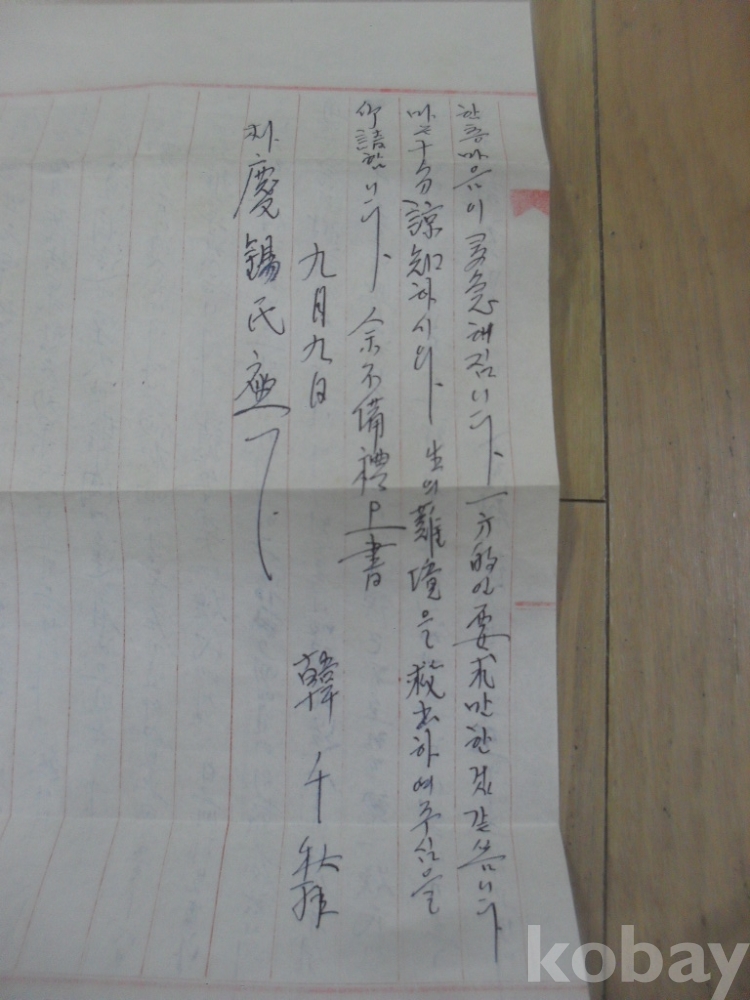 한층마음이 急해짐니다 一方的인 要求만한것같씀니다
마는十分諒知하시와 生의難境을 救出하여주심을
仰請합니다 余不備禮上書
九月九日 韓千秋拜
慶錫氏座下
kobay